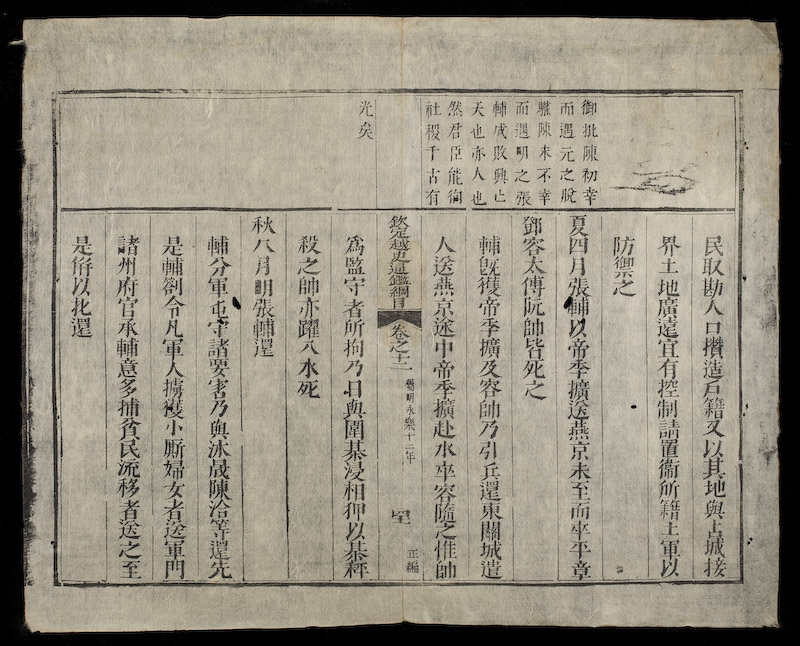 御批陳初幸
而遇元之脫
驩陳末不幸
而遇明之張
輔成敗興亡
天也亦人也
然君臣能徇
社稷千古有
光矣
民取勘人口攢造戶籍又以其地與占城接
界土地廣遠宜有控制請置衞所籍土軍以
防禦之
夏四月張輔以帝季擴送燕京未至而卒平章
鄧容太傅阮帥皆死之
輔旣獲帝季擴及容帥乃引兵還東關城遣
人送燕京途中帝季擴赴水卒容隨之惟帥
欽定越史通鑑綱目
卷之十二
屬明永樂十二年
正編
爲監守者所拘乃日與圍棊浸相狎以棊秤
殺之帥亦躍入水死
秋八月明張輔還
輔分軍屯守諸要害乃與沐晟陳洽等還先
是輔劄令凡軍人擄獲小廝婦女者送軍門
諸州府官承輔意多捕貧民流移者送之至
是俻以北還